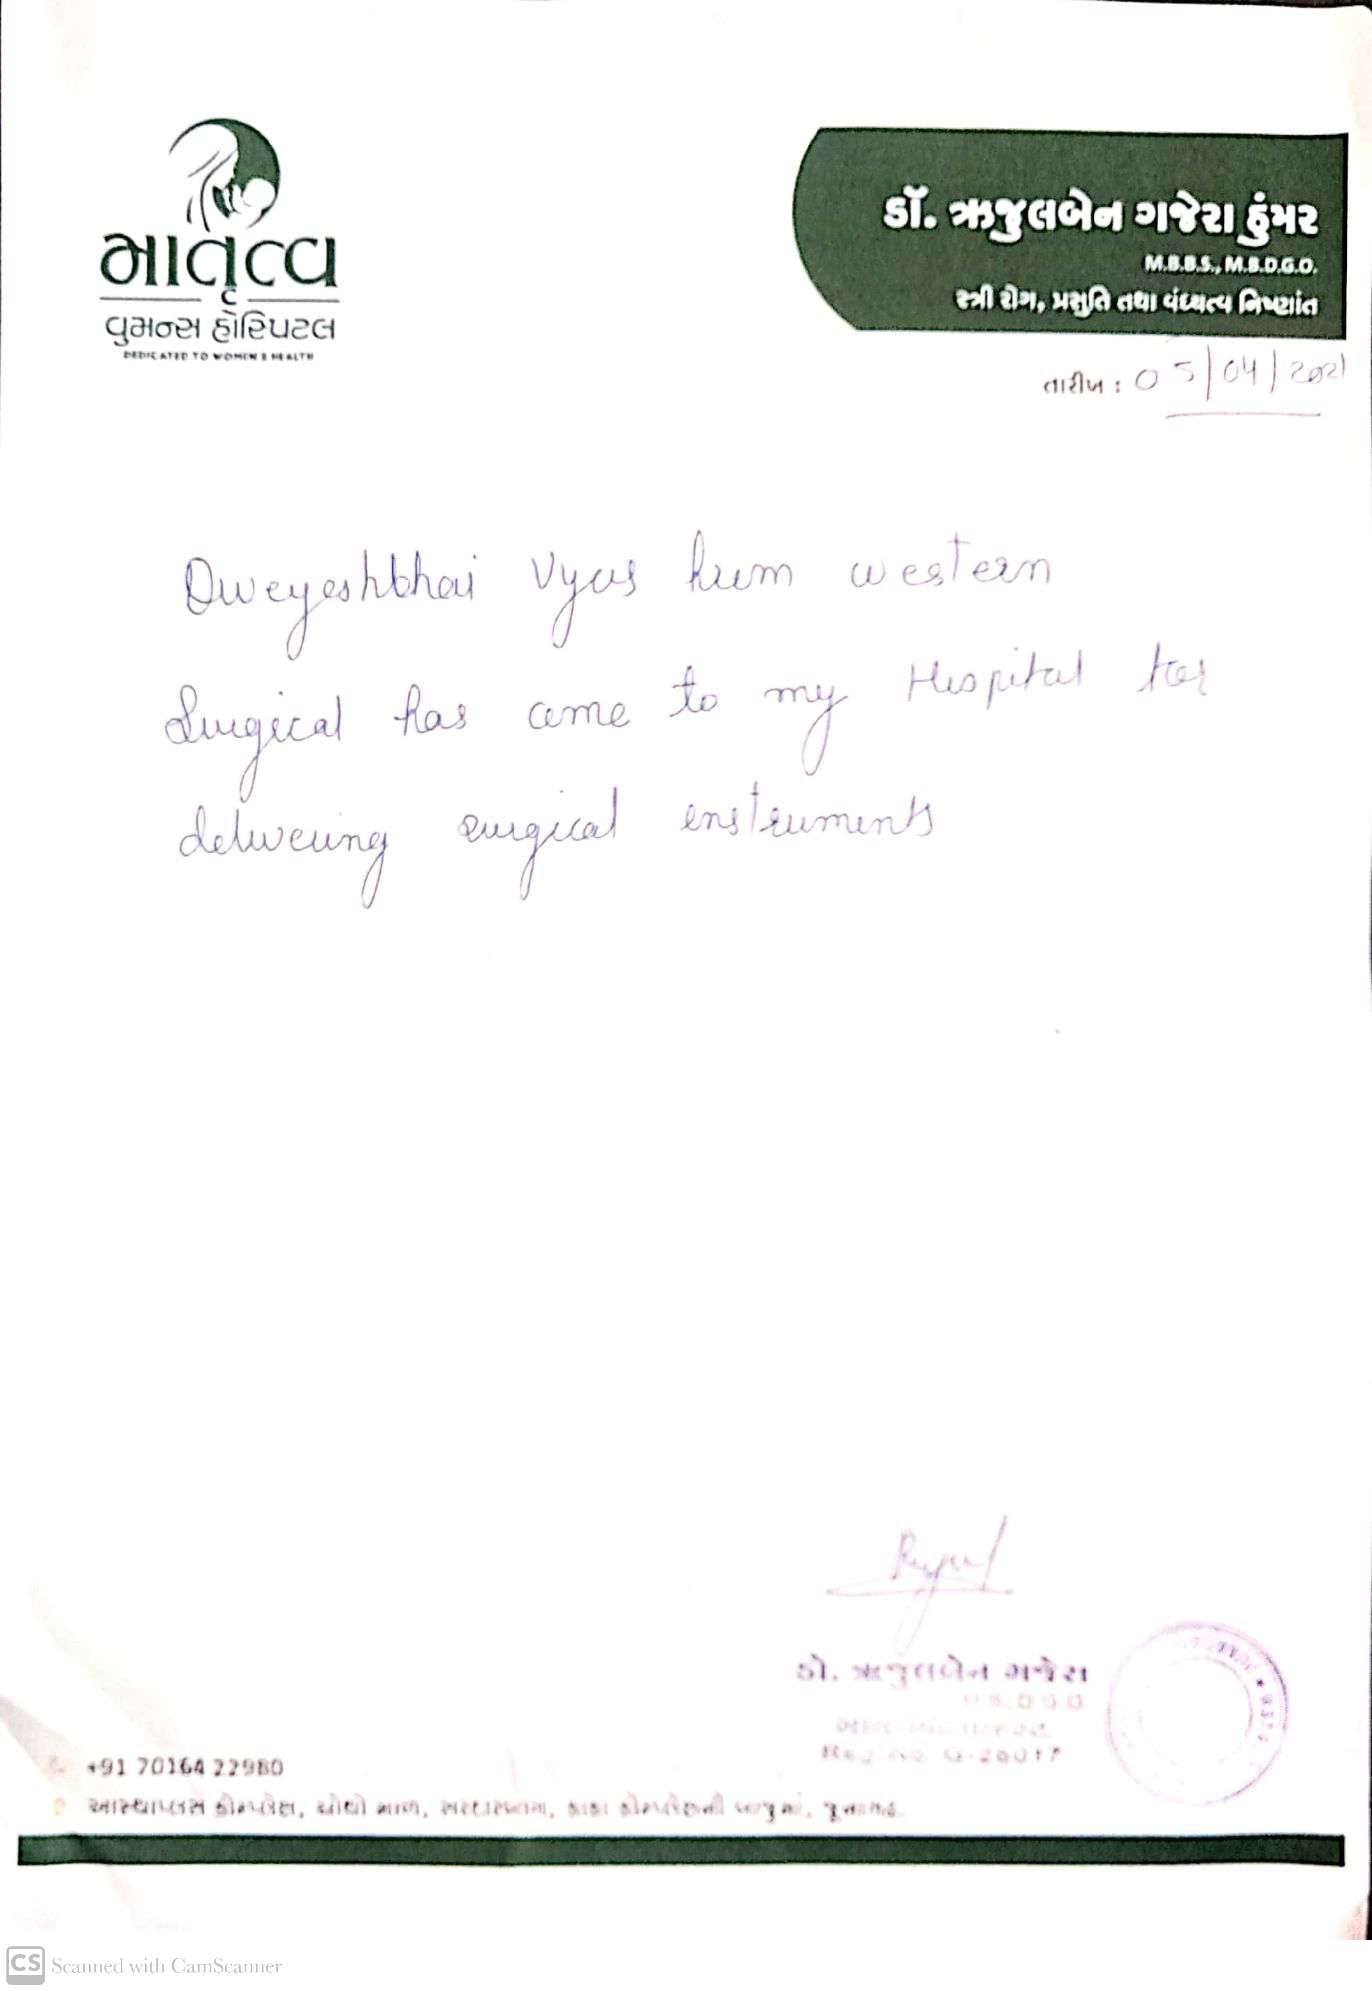 માતૃત્વ
વુમન્સ હોસ્પિટલ
DEDICATED TO WOMEN'S HEALTH
ડૉ. ઋજુલબેન ગજેરા હુંમર
M.B.B.S., M.B.D.G.O.
સ્ત્રી રોગ, પ્રસુતિ તથા વંધ્યત્વ નિષ્ણાંત
તારીખ : 05/04/2021
Dweyeshbhai Vyas from western
Surgical has come to my Hospital for
delivering surgical instruments
ડૉ. ઋજુલબેન ગજેરા
+91 70164 22980
CS Scanned with CamScanner